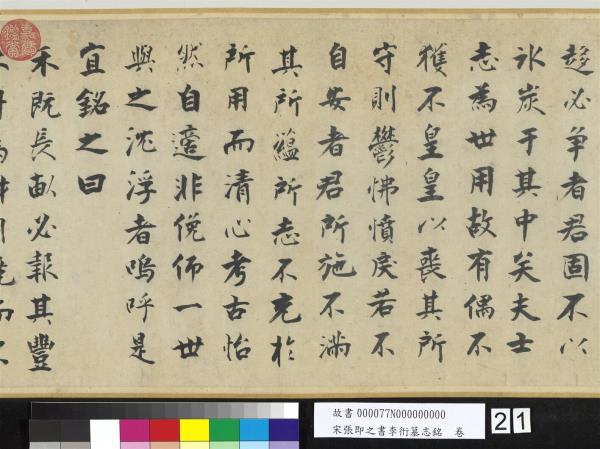 趍必爭者君固不以
氷炭于其中矣夫士
志為世用故有偶不
獲不皇皇以喪其所
守則鬱怫憤戾若不
自安者君所施不滿
其所蘊所志不充於
所用而清心考古怡
然自適非俛仰一世
與之沈浮者嗚呼是
宜銘之曰
禾既長畝必報其豐
故書 000077N000000000
宋張即之書李衎墓志銘 卷
21